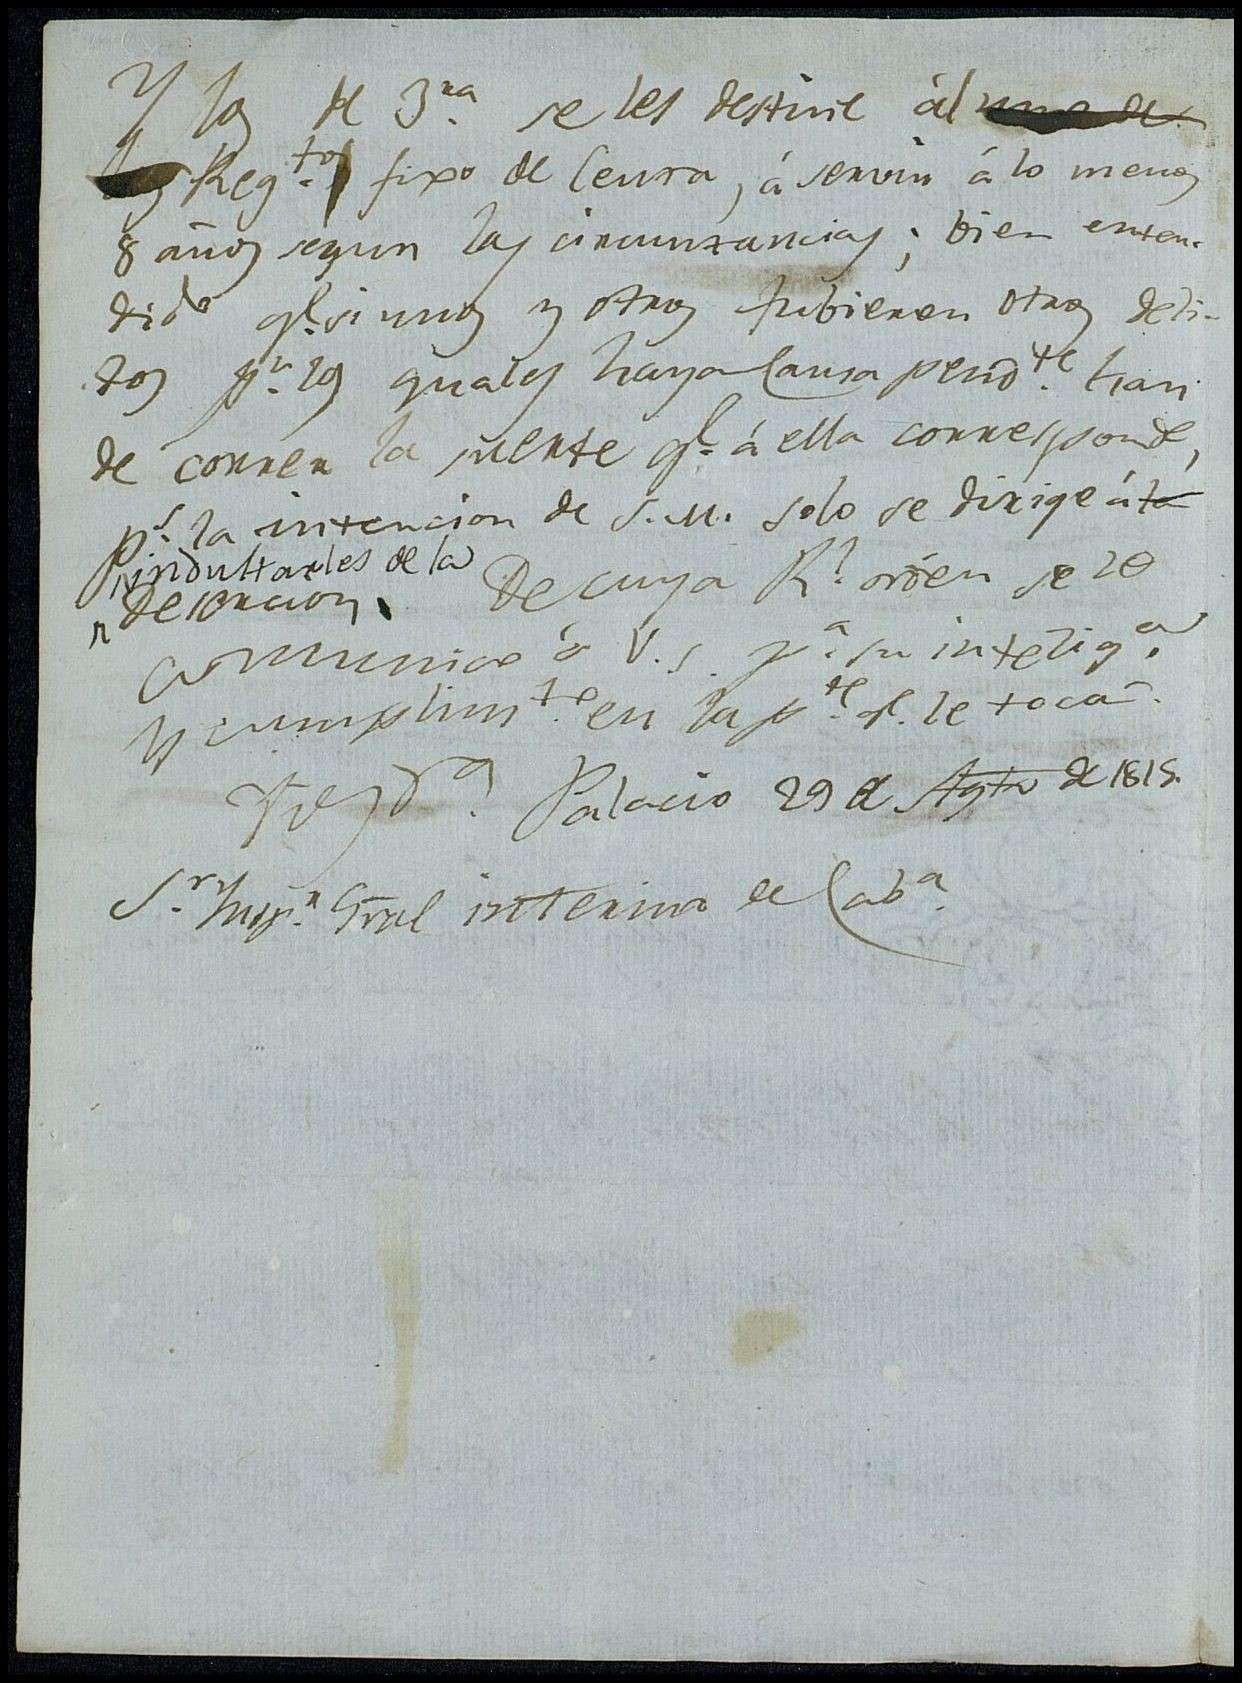 Y los de 3.ra se les destine ál uno de
los Reg.tos fixo de Ceuta, á servir á lo menos
8 años segun las circunstancias; bien enten-
dido q.e si unos y otros tubieren otros deli-
tos p.r los quales haya Causa pend.te han
de correr la suerte q.e á ella corresponde,
p.s la intencion de S.M. solo se dirige á la
indultarles de la
desercion. De cuya R.l orden se lo
comunico á V.S. p.a su intelig.a
y cumplim.to en la p.te q.e le toca.
Palacio 29 de Agto de 1815.
S.r Insp.r Gral interino de Cab.a